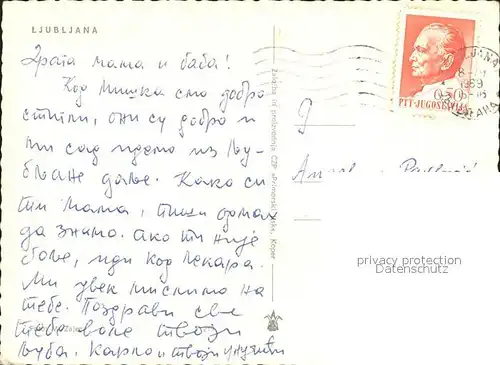 LJUBLJANA
Драга мама и баба!
Код Мишка смо добро
стигли, они су добро и
ми сад идемо из Љу-
бљане даље. Како си
ти мама, пиши одмах
да знамо. ако ти није
боље, иди код лекара.
Ми увек мислимо на
тебе. Поздрави све
тебе воле твоји
Љуба, Карло и твоји унучићи
PTT-JUGOSLAVIJA
0,50
1969
Založba in
CZP »Primorski tisk«, Koper
privacy protection
Datenschutz